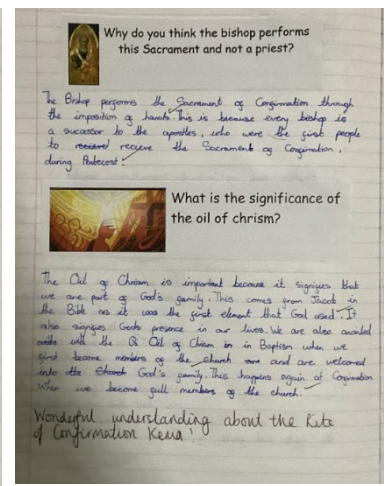 Why do you think the bishop performs
this Sacrament and not a priest?
The Bishop performs the Sacrament of Confirmation through
the imposition of hands. This is because every bishop is
a successor to the apostles, who were the first people
to recieve the Sacrament of Confirmation,
during Pentecost.
What is the significance of
the oil of chrism?
The Oil of Chrism is important because it signifies that
we are part of God's family. This comes from Jacob in
the Bible as it was the first element that God used. It
also signifies Gods presence in our lives. We are also
with the Oil of Chrism in Baptism when we
first become members of the church and are welcomed
into God's family. This happens again at Confirmation
when we become full members of the church.
Wonderful understanding about the Rite
of Confirmation